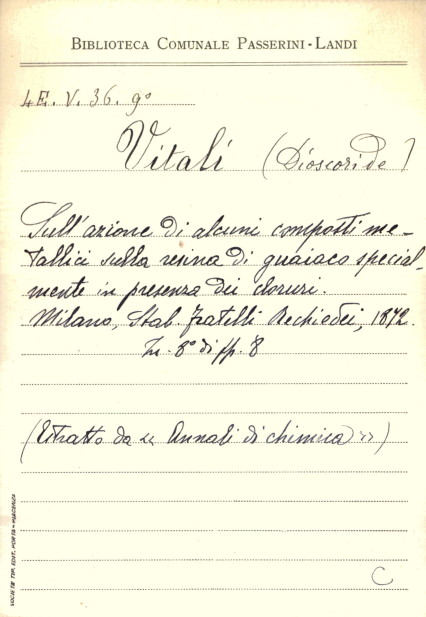 BIBLIOTECA COMUNALE PASSERINI-LANDI
4E. V. 36. 9°
Vitali (Dioscoride)
Sull'azione di alcuni composti me-
tallici sulla resina di guaiaco special-
mente in presenza dei cloruri.
Milano, Stab. Fratelli Rechiedei, 1872.
In-8° di pp. 8
(Estratto da << Annali di chimica >>)
C